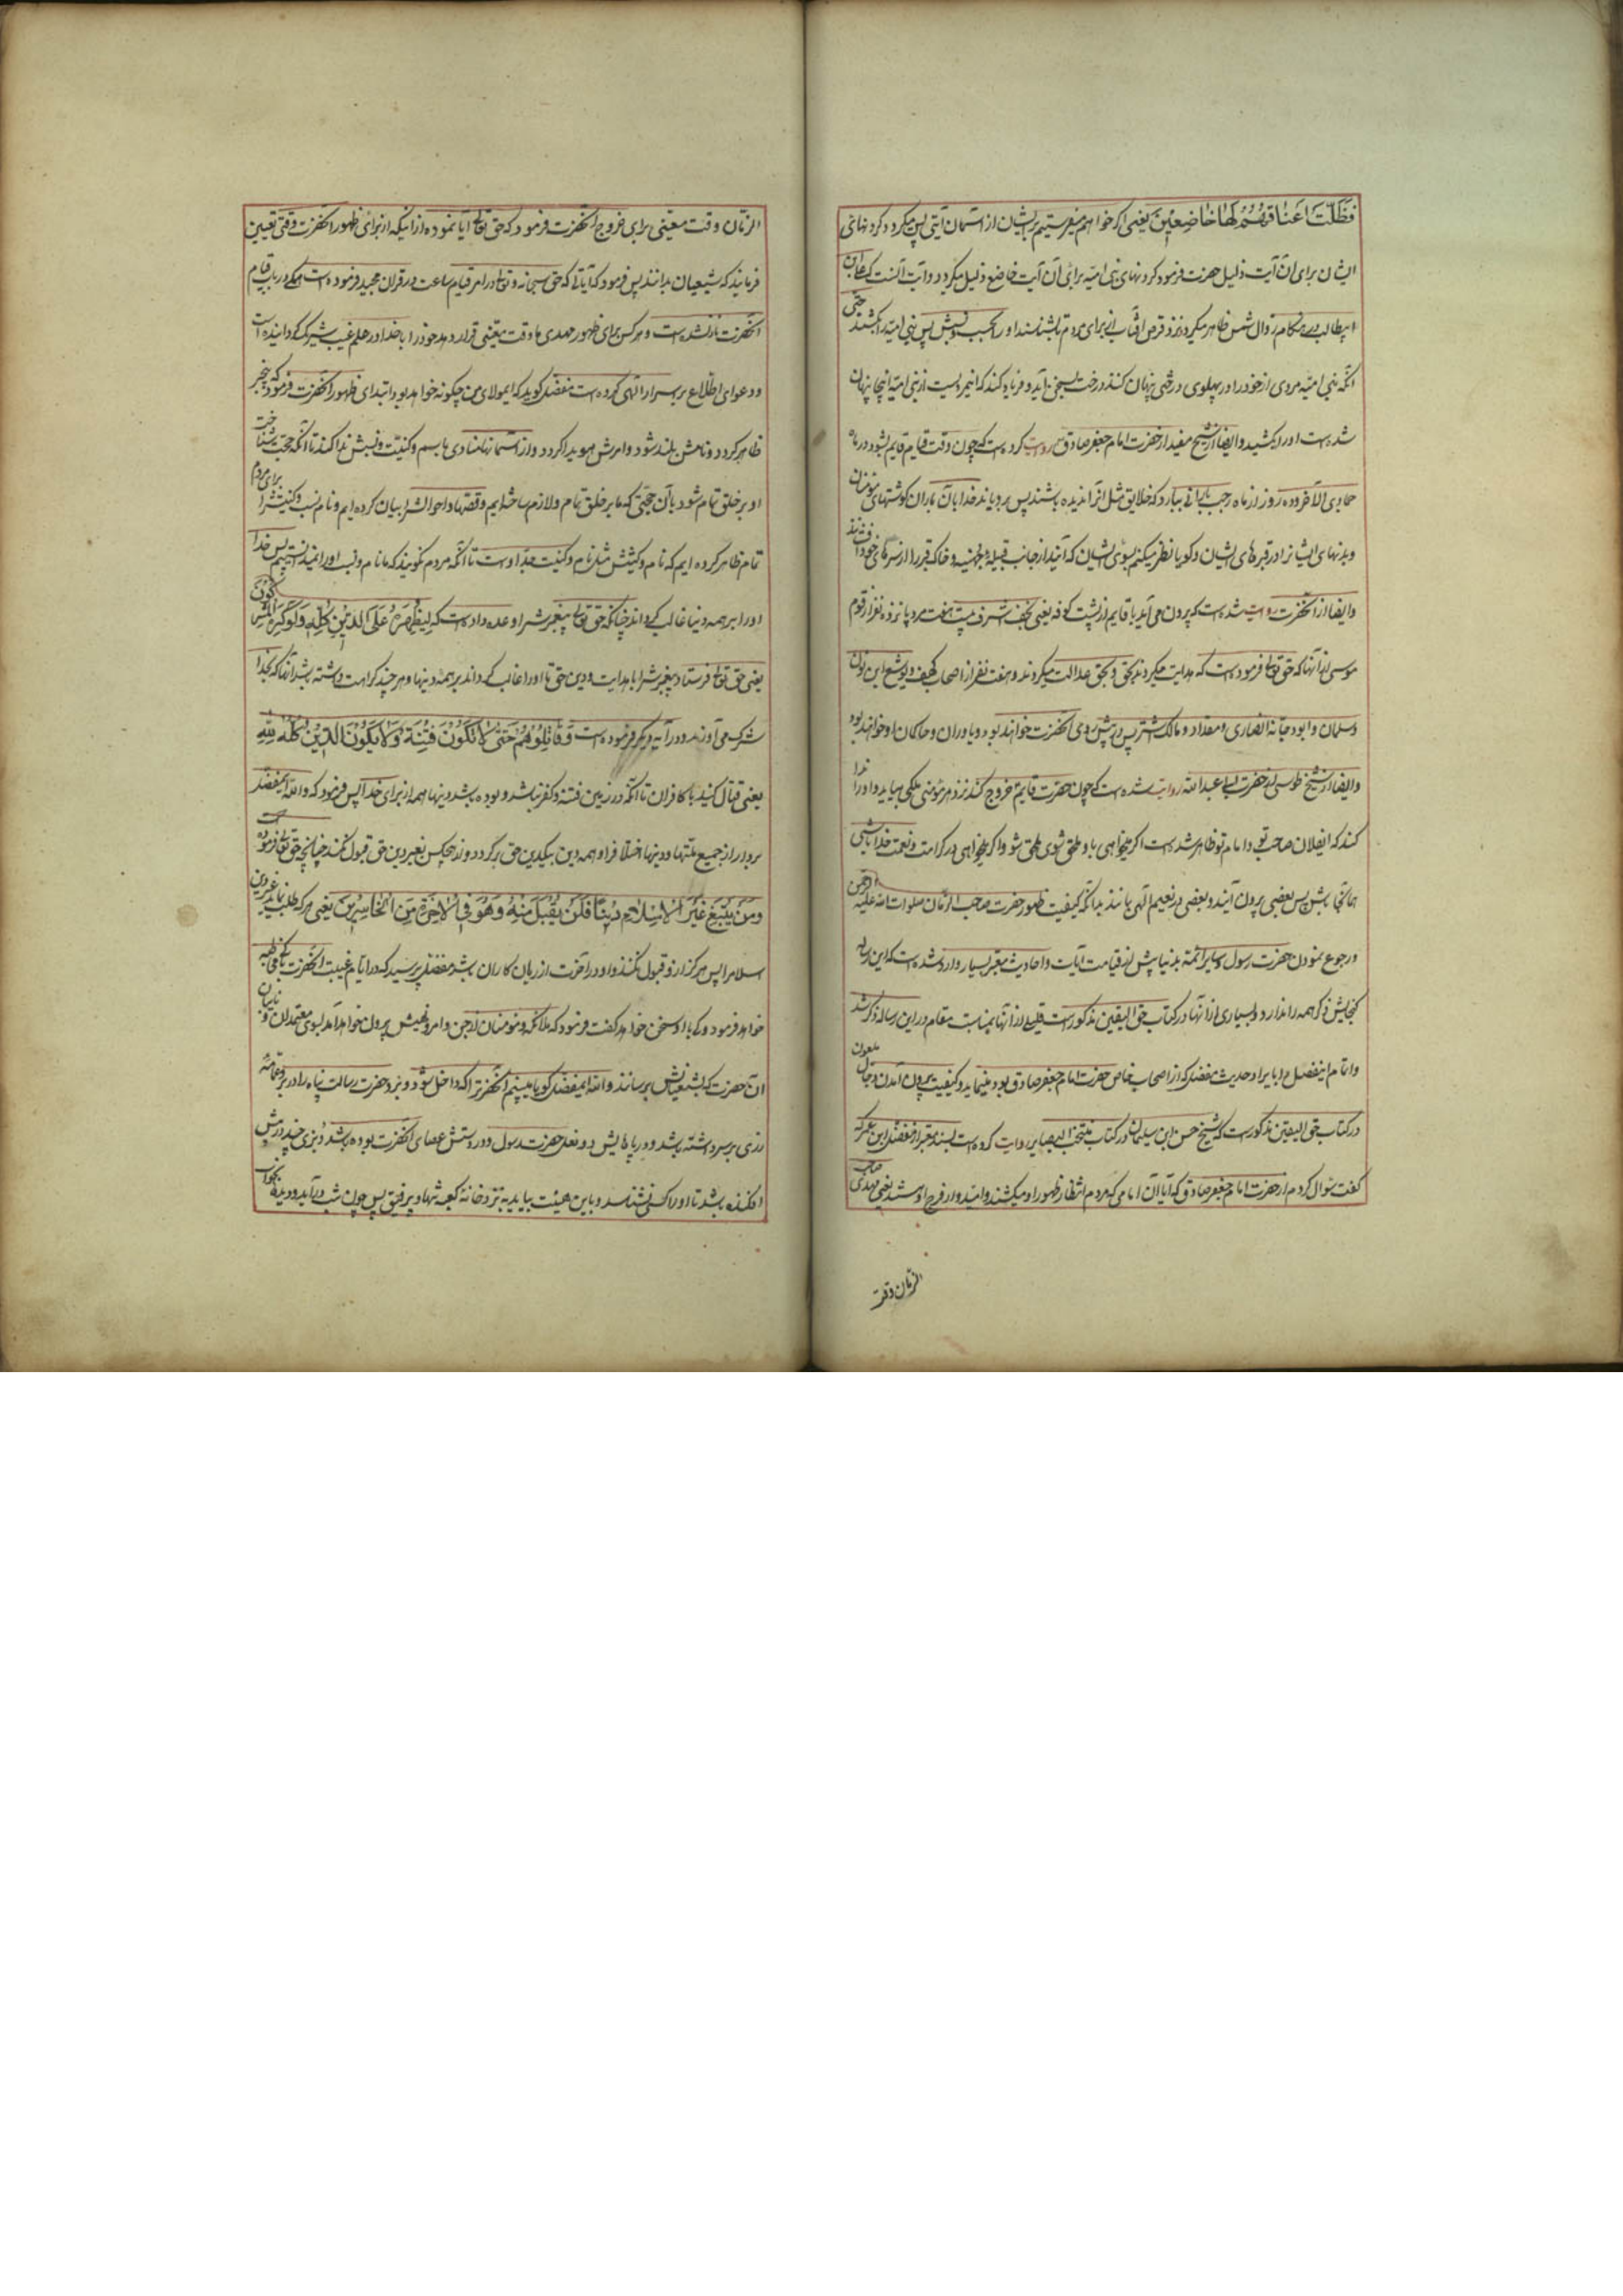 فَظَلَّتْ اَعْنَاقُهُمْ لَهَا خَاضِعِیْنَ یعنی اکر خواهم میفرستیم بر ایشان از آسمان آیتی پس میکردد کردنهای
ایشان برای آن آیت ذلیل حضرت فرمود کردنهای بنی امیّه برای آن آیت خاضع و ذلیل میکردد و آیت آنست که علی ابن
ابیطالب در هنکام زوال شمس ظاهر میکردد نزد قرص آفتاب از برای مردم تا بشناسند او را بحسب و نسبش پس بنی امیّه را بکشند حتّی
آنکه بنی امیّه مردی از خود را در پهلوی درختی پنهان کنند درخت بسخن آید و فریاد کند که این مردیست از بنی امیّه اینجا پنهان
شده است او را بکشید و ایضا از شیخ مفید از حضرت امام جعفر صادق روایت کرده است که چون وقت قیام قایم بشود در ماه
جمادی الآخر و ده روز از ماه رجب بارانی ببارد که خلایق مثل آنرا ندیده باشند پس برویاند خدا بآن باران کوشتهای مؤمنان
و بدنهای ایشانرا در قبرهای ایشان و کویا نظر میکنم بسوی ایشان که آیند از جانب قبیلهٔ جهینه و خاک قبر را از سرهای خود افشانند
و ایضا از آنحضرت روایت شده است که بیرون می آید با قایم از پشت کوفه یعنی نجف اشرف بیست و هفت مرد پانزده نفر از قوم
موسی از آنها که حق تعالی فرموده است که هدایت میکردند بحق و بحق عدالت میکردند و هفت نفر از اصحاب کهف و یوشع ابن نون
و سلمان و ابو دجانهٔ انصاری و مقداد و مالک اشتر پس در پیش روی آنحضرت خواهند بود و یاوران و حاکمان او خواهند بود
و ایضا از شیخ طوسی از حضرت ابی عبد الله روایت شده است که چون حضرت قایم خروج کند نزد هر مؤمنی ملکی بیاید و او را ندا
کند که ایفلان صاحب تو و امام تو ظاهر شده است اکر میخواهی باو ملحق شوی ملحق شو و اکر میخواهی در کرامت و نعمت خدا باشی
همانجا باش پس بعضی بیرون آیند و بعضی در نعیم الهی بمانند بدانکه کیفیت ظهور حضرت صاحب الزمان صلوات الله علیه
و رجوع نمودن حضرت رسول و سایر ائمه بدنیا پیش از قیامت آیات و احادیث معتبر بسیار وارد شده است که این رساله
کنجایش ذکر همه را ندارد و بسیاری از آنها در کتاب حق الیقین مذکور است قلیلی از آنها بمناسبت مقام در این رساله ذکر شد
و اتمام اینفصل را بایراد حدیث مفضل که از اصحاب خاص حضرت امام جعفر صادق بود مینماید و کیفیت بیرون آمدن دجال ملعون
در کتاب حق الیقین مذکور است که شیخ حسن ابن سلیمان در کتاب منتخب البصایر روایت کرده است بسند معتبر از مفضل ابن عمر که
کفت سؤال کردم از حضرت امام جعفر صادق که آیا آن امامی که مردم انتظار ظهور او میکشند و امیدوار فرج او هستند یعنی مهدی صاحب
الزمان وقت
الزمان وقت معیّنی برای خروج آنحضرت فرمود که حق تعالی ابا نموده از اینکه از برای ظهور آنحضرت وقتی تعیین
فرماید که شیعیان بدانند پس فرمود که آیاتی که حق سبحانه و تعالی در امر قیام ساعت در قران مجید فرموده است همکی در باب قیام
آنحضرت نازل شده است و هر کس برای ظهور مهدی ما وقت معیّنی قرار دهد خود را با خدا در علم غیب شریک کردانیده است
و دعوای اطلاع بر اسرار الهی کرده است مفضل کوید که ایمولای من چکونه خواهد بود ابتدای ظهور آنحضرت فرمود که بیخبر
ظاهر کردد و نامش بلند شود و امرش هویدا کردد و از آسمانها منادی باسم و کنیت و نسبش ندا کند تا آنکه حجت شناخت
او بر خلق تمام شود بآن حجّتی که ما بر خلق تمام و لازم ساخته ایم و قصّها و احوالشرا بیان کرده ایم و نام و نسب و کنیتشرا برای مردم
تمام ظاهر کرده ایم که نام و کنیتش مثل نام و کنیت جدّ اوست تا آنکه مردم نکویند که ما نام و نسب او را نمیدانستیم پس خدا
او را بر همه دینها غالب کرداند چنانکه حق تعالی پیغمبرشرا وعده داده است که لِیُظْهِرَهُ عَلَی الدِّیْنِ کُلِّهِ وَلَوْ کَرِهَ الْمُشْرِکُوْنَ
یعنی حق تعالی فرستاد پیغمبرشرا با هدایت و دین حق تا او را غالب کرداند بر همه دینها و هر چند کراهت داشته باشند آنها که بخدا
شرک می آورند و در آیه دیکر فرموده است وَقَاتِلُوْهُمْ حَتّٰی لَا تَکُوْنَ فِتْنَةٌ وَلَا یَکُوْنَ الدِّیْنُ کُلُّهُ لِلّٰهِ
یعنی قتال کنید با کافران تا آنکه در زمین فتنه و کفر نباشد و بوده باشد دینها همه از برای خدا پس فرمود که والله ایمفضل
بردارد از جمیع ملتها و دینها اختلاف را و همه دین بیکدین حق برکردد و از هیچکس بغیر دین حق قبول نکند چنانچه حق تعالی فرموده است
وَمَنْ یَبْتَغِ غَیْرَ الْاِسْلَامِ دِیْنًا فَلَنْ یُقْبَلَ مِنْهُ وَهُوَ فِی الْاٰخِرَةِ مِنَ الْخَاسِرِیْنَ یعنی هر که طلب نماید غیر دین
اسلامرا پس هرکز از او قبول نکنند و او در آخرت از زیان کاران باشد مفضل پرسید که در ایام غیبت آنحضرت با که مخاطبه
خواهد فرمود و که با او سخن خواهد کفت فرمود که ملائکه و مؤمنان از جن و امر و نهیش بیرون خواهد آمد بسوی معتمدان و نایبان
آن حضرت که بشیعیانش برسانند والله ایمفضل کویا میبینم آنحضرترا که داخل شود و برد حضرت رسالت پناه را در بر و عمامهٔ
زردی بر سر داشته باشد و در پاهایش دو نعل حضرت رسول و در دستش عصای آنحضرت بوده باشد و بزی چند در پیش
افکنده باشد تا او را کسی نشناسد و باین هیئت بیاید بنزد خانهٔ کعبه تنها و بیرفیق پس چون شب درآید و دیدها بخواب